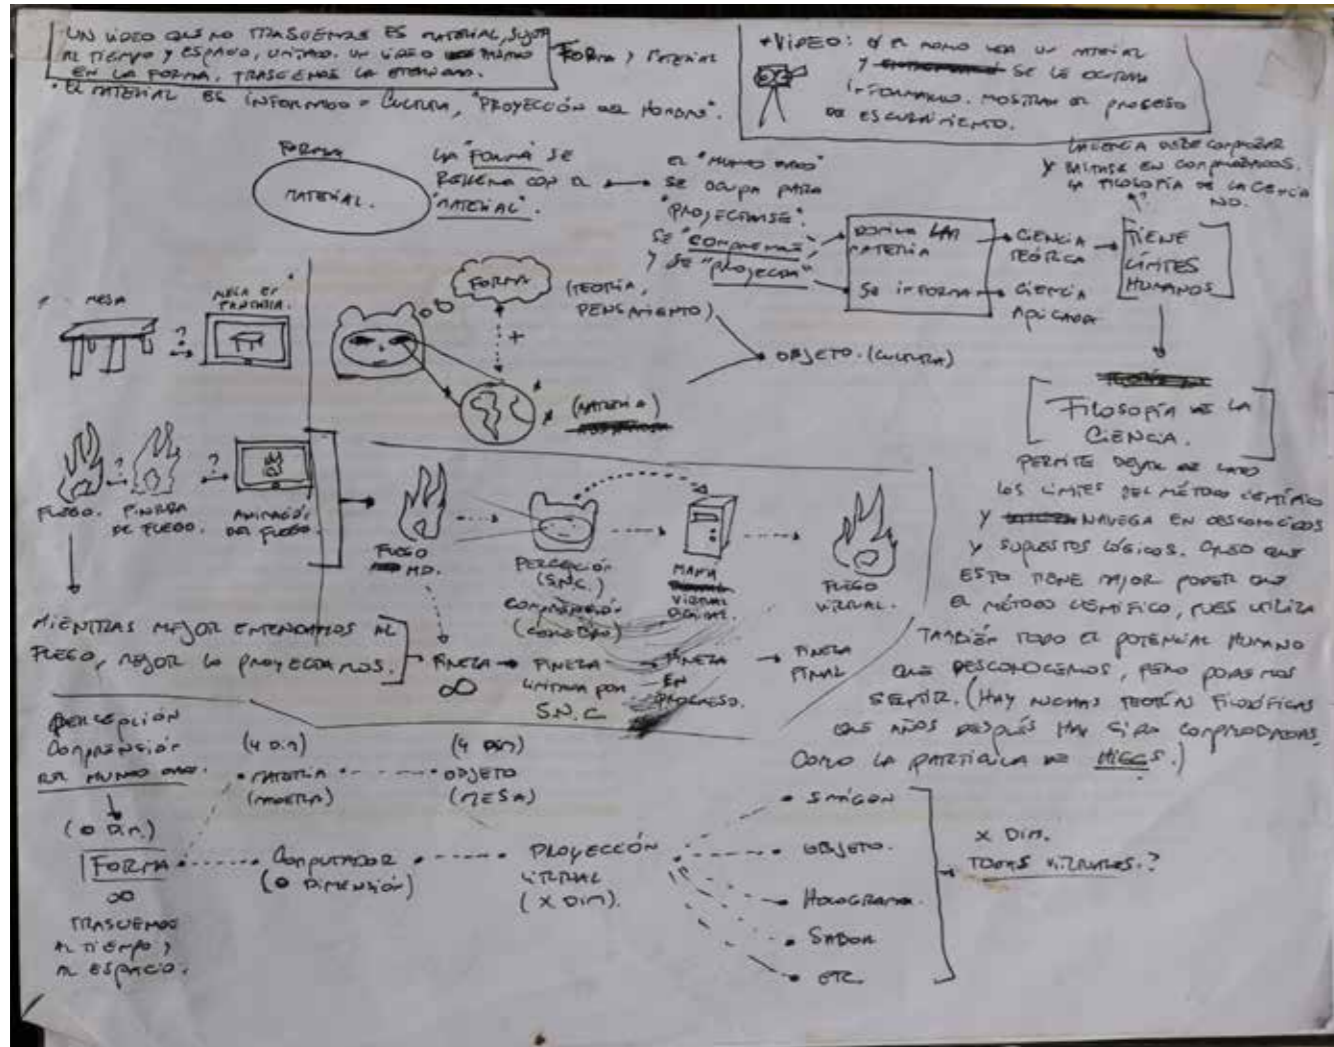 UN VIDEO QUE NO TRASCIENDE ES MATERIAL, SUJETO
AL TIEMPO Y ESPACIO, LIMITADO. UN VIDEO
EN LA FORMA, TRASCIENDE LA ETERNIDAD.
FORMA Y MATERIAL
• EL MATERIAL ES INFORMADO = CULTURA, "PROYECCIÓN DEL HOMBRE".
* VIDEO: EL MONO VEA UN MATERIAL
Y SE LE OCURRA
INFORMARLO. MOSTRAR EL PROCESO
DE ESCURRIMIENTO.
FORMA
MATERIAL.
LA "FORMA" SE
RELLENA CON EL
"MATERIAL".
EL "MUNDO DADO"
SE OCUPA PARA
"PROYECTARSE".
SE "COMPRENDE"
Y SE "PROYECTA"
DOMINA LA
MATERIA
SE INFORMA
CIENCIA
TEÓRICA
CIENCIA
APLICADA
TIENE
LÍMITES
HUMANOS
LA CIENCIA DEBE COMPROBAR
Y BASARSE EN COMPROBADOS.
LA FILOSOFÍA DE LA CIENCIA
NO.
MESA
?
MESA EN
PANTALLA.
FORMA
(TEORÍA,
PENSAMIENTO)
+
(MATERIA)
OBJETO. (CULTURA)
FILOSOFÍA DE LA
CIENCIA.
PERMITE DEJAR DE LADO
LOS LÍMITES DEL MÉTODO CIENTÍFICO
Y NAVEGA EN DESCONOCIDOS
Y SUPUESTOS LÓGICOS. CREO QUE
ESTO TIENE MEJOR PODER QUE
EL MÉTODO CIENTÍFICO, PUES UTILIZA
TAMBIÉN TODO EL POTENCIAL HUMANO
QUE DESCONOCEMOS, PERO PODEMOS
SENTIR. (HAY MUCHAS TEORÍAS FILOSÓFICAS
QUE AÑOS DESPUÉS HAN SIDO COMPROBADAS.
COMO LA PARTÍCULA DE HIGGS.)
?
?
FUEGO.
PINTURA
DE FUEGO.
ANIMACIÓN
DEL FUEGO.
FUEGO
MD.
PERCEPCIÓN
(S.N.C.)
COMPRENSIÓN
MAPA
VIRTUAL
DIGITAL.
FUEGO
VIRTUAL.
MIENTRAS MEJOR ENTENDAMOS AL
FUEGO, MEJOR LO PROYECTAMOS.
FINEZA
∞
FINEZA
LIMITADA POR
S.N.C
FINEZA
EN
PROGRESO.
FINEZA
FINAL
PERCEPCIÓN
COMPRENSIÓN
DEL MUNDO DADO.
(0 DIM.)
FORMA
∞
TRASCIENDE
AL TIEMPO Y
AL ESPACIO.
(4 DIM)
• MATERIA
(MADERA)
(4 DIM)
• OBJETO
(MESA)
COMPUTADOR
(0 DIMENSIÓN)
PROYECCIÓN
VIRTUAL
(X DIM).
• OBJETO.
• HOLOGRAMA.
• SABOR
• ETC.
X DIM.
TODAS VIRTUALES.?